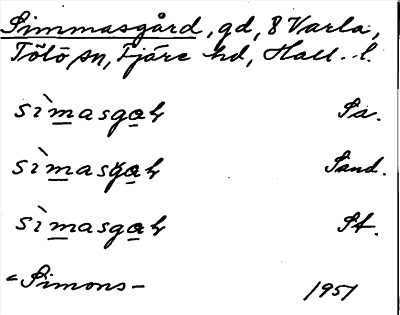 Simmasgård, gd, 8 Varla,
Tölö sn, Fjäre hd, Hall. l.
sìmasgaɽ Sa.
sìmasgaɽ Sand.
sìmasgaɽ St.
< Simons-
1951